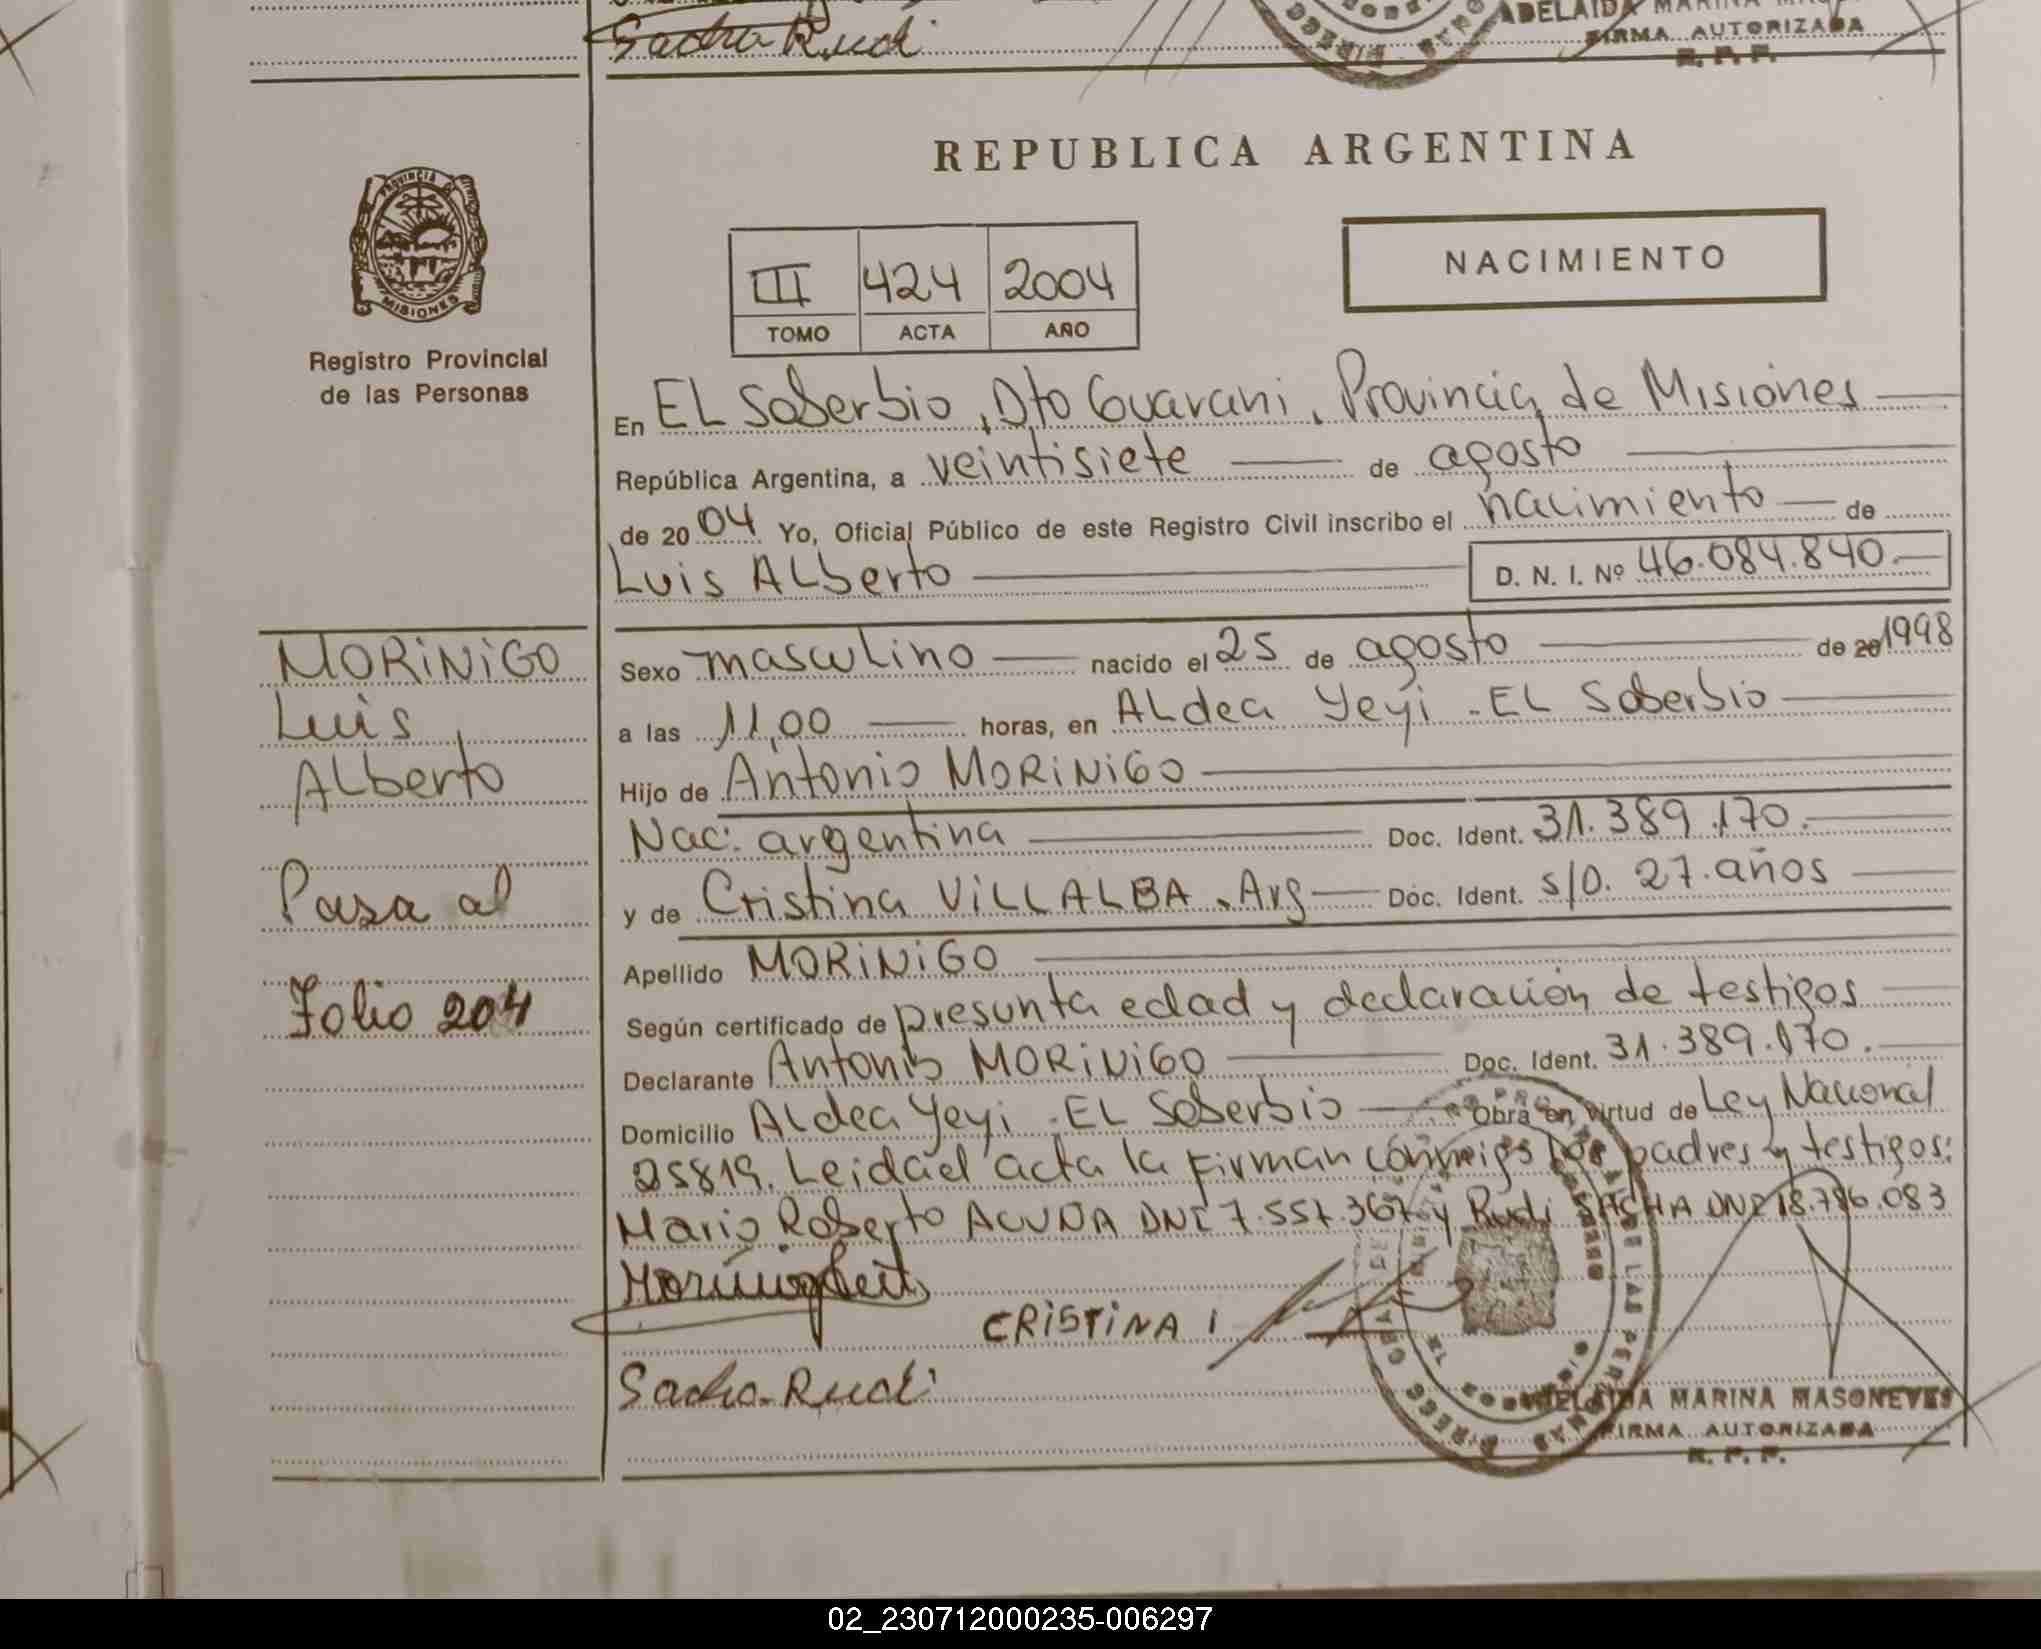 Sacha Rudi
ADELAIDA MARINA
FIRMA AUTORIZADA
R. P. P.
PROVINCIA DE
MISIONES
Registro Provincial
de las Personas
REPUBLICA ARGENTINA
NACIMIENTO
III 424 2004
TOMO ACTA AÑO
En EL Soberbio, Dto Guarani, Provincia de Misiones
República Argentina, a veintisiete de agosto
de 2004 Yo, Oficial Público de este Registro Civil inscribo el nacimiento de
Luis ALberto D. N. I. Nº 46.084.840.
MORiNiGO
Luis
ALberto
Pasa al
Folio 204
Sexo masculino nacido el 25 de agosto de 20 1998
a las 11,00 horas, en ALdea Yeyi - EL Soberbio
Hijo de Antonio MORiNiGO
Nac: argentina Doc. Ident. 31.389.170.
y de Cristina ViLLALBA. Arg Doc. Ident. s/D. 27 años
Apellido MORiNiGO
Según certificado de presunta edad y declaración de testigos
Declarante Antonio MORiNiGO Doc. Ident. 31.389.170.
Domicilio ALdea Yeyi - EL Soberbio Obra en virtud de Ley Nacional
25819. Leida el acta la firman conmigo los padres y testigos:
Mario Roberto ACUÑA DNI 7.557.367 y Rudi SACHA DNI 18.786.083
CRiSTiNA
Sacha Rudi
ADELAIDA MARINA MASONEVES
FIRMA AUTORIZADA
R. P. P.
02_230712000235-006297